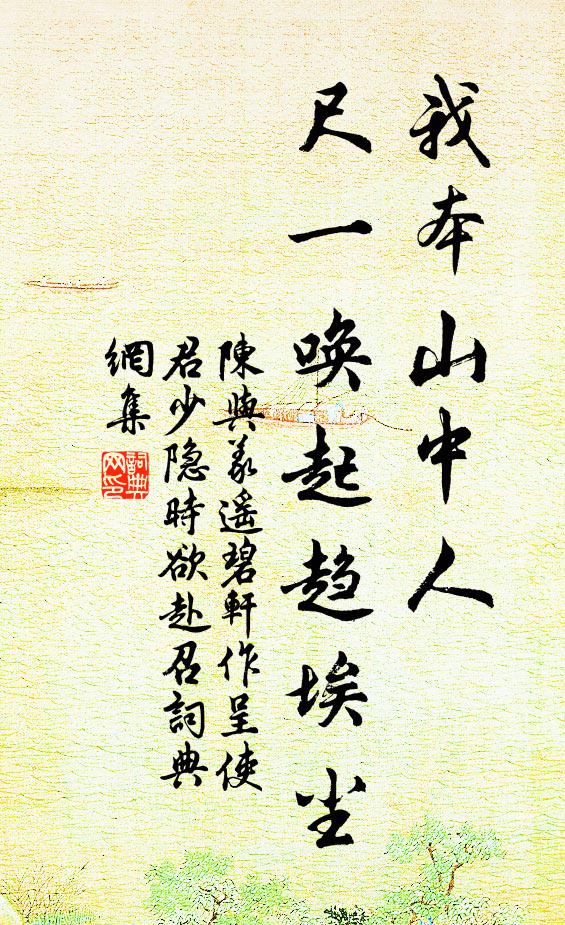 我本山中人
尺一唤起趋埃尘
陳與義遥碧軒作呈使
君少隐時欲赴召詞典
網集
詞典
网印